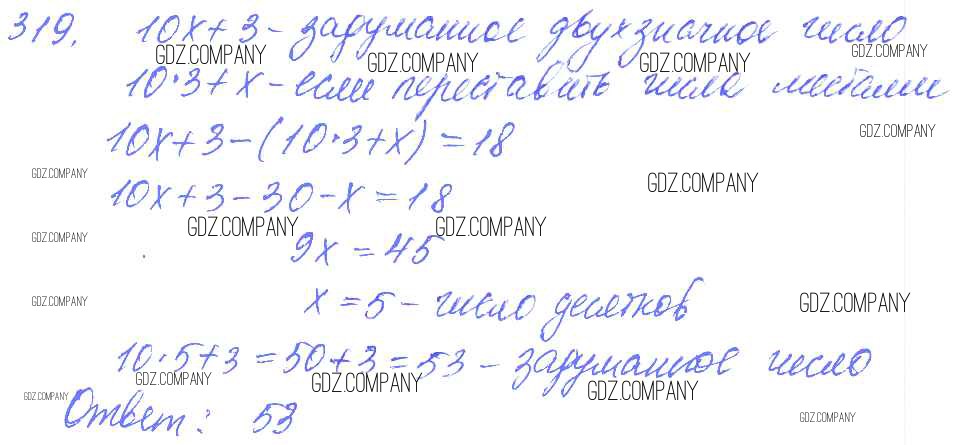 319. 10x+3 - задуманное двухзначное число
GDZ.COMPANY GDZ.COMPANY GDZ.COMPANY GDZ.COMPANY
10·3+x - если переставить числа местами
GDZ.COMPANY
10x+3-(10·3+x)=18
GDZ.COMPANY GDZ.COMPANY
10x+3-30-x=18
GDZ.COMPANY GDZ.COMPANY
GDZ.COMPANY
9x=45
GDZ.COMPANY GDZ.COMPANY
x=5 - число десятков
10·5+3=50+3=53 - задуманное число
GDZ.COMPANY GDZ.COMPANY GDZ.COMPANY
GDZ.COMPANY
Ответ: 53
GDZ.COMPANY